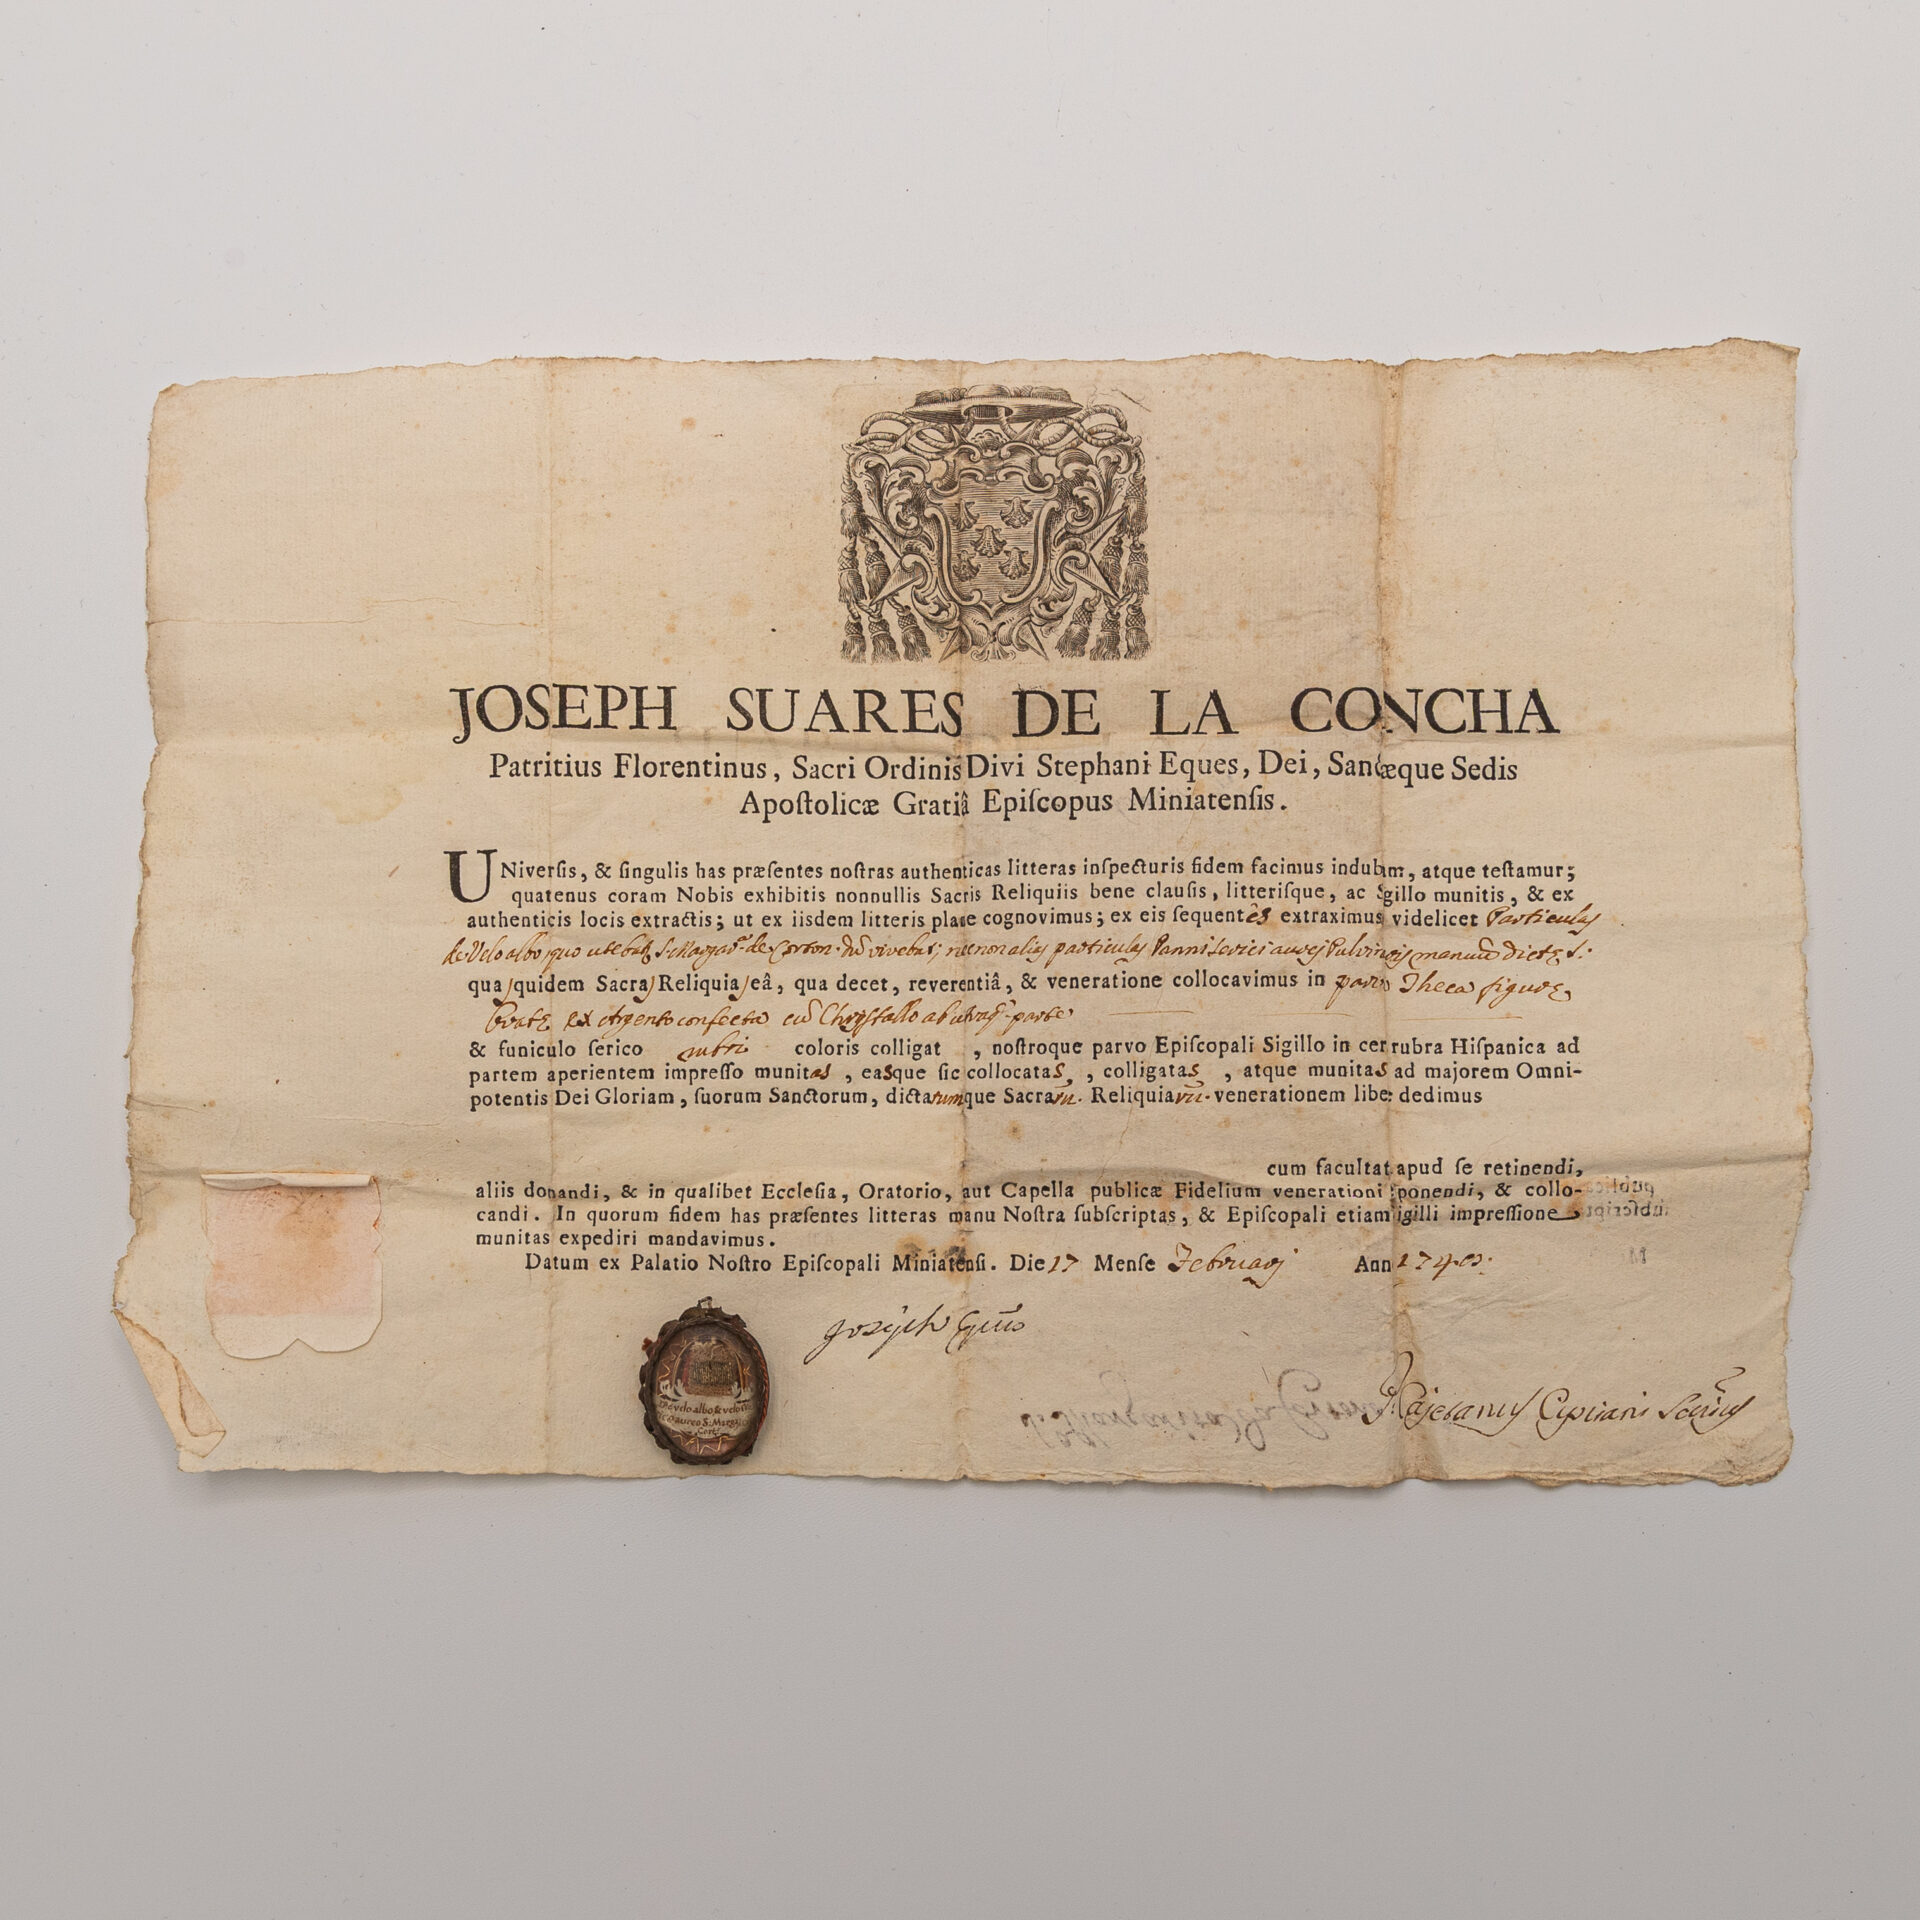 JOSEPH SUARES DE LA CONCHA
Patritius Florentinus, Sacri Ordinis Divi Stephani Eques, Dei, Sanctæque Sedis
Apoſtolicæ Gratiâ Epiſcopus Miniatenſis.
UNiverſis, & ſingulis has præſentes noſtras authenticas litteras inſpecturis fidem facimus indubiam, atque teſtamur;
quatenus coram Nobis exhibitis nonnullis Sacris Reliquiis bene clauſis, litteriſque, ac Sigillo munitis, & ex
authenticis locis extractis; ut ex iiſdem litteris plane cognovimus; ex eis ſequentes extraximus videlicet Particulas
de Velo albo, quo utebat S. Margar. de Corton. dū vivebat; necnon alias particulas Panni serici aurei Pulvinaris manuū dictę S.
quas quidem Sacras Reliquias eâ, qua decet, reverentiâ, & veneratione collocavimus in parva Theca figurę
Ovatę ex Argento confecta cū Chrystallo ab utraq. parte
& funiculo ſerico rubri coloris colligat , noſtroque parvo Epiſcopali Sigillo in cer rubra Hiſpanica ad
partem aperientem impreſſo munitas , easque ſic collocatas , colligatas , atque munitas ad majorem Omni-
potentis Dei Gloriam, ſuorum Sanctorum, dictarumque Sacrarū. Reliquiarū. venerationem libe: dedimus
cum facultat apud ſe retinendi,
aliis donandi, & in qualibet Eccleſia, Oratorio, aut Capella publicæ Fidelium venerationi ponendi, & collo-
candi. In quorum fidem has præſentes litteras manu Noſtra ſubſcriptas, & Epiſcopali etiam igilli impreſſione
munitas expediri mandavimus.
Datum ex Palatio Noſtro Epiſcopali Miniatenſi. Die 17 Menſe Februarij Ann
Joseph Epūs
Cajetanus Cipriani Secrius
velo albo & velo
aureo S. Marga
Cort.